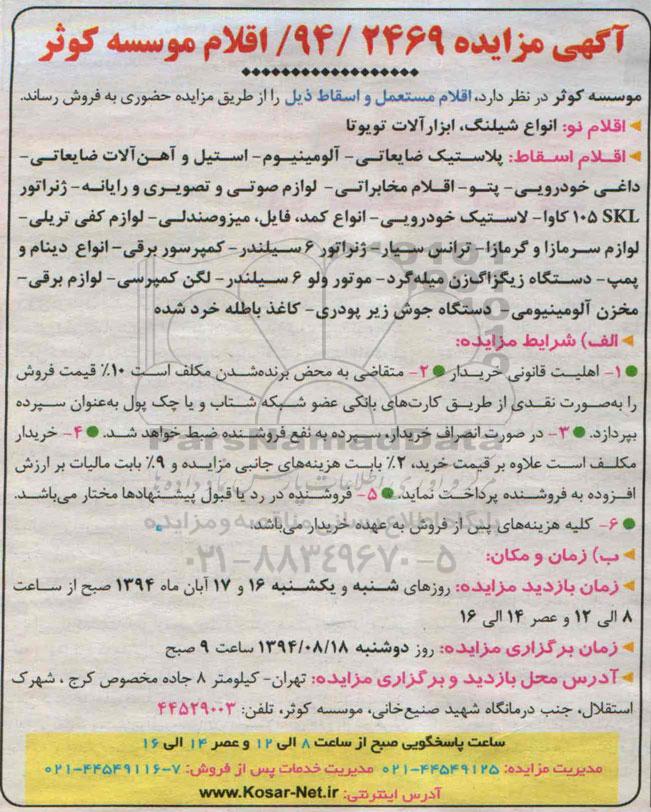 آگهی مزایده ۲۴۶۹ /۹۴/ اقلام موسسه کوثر
موسسه کوثر در نظر دارد، اقلام مستعمل و اسقاط ذیل را از طریق مزایده حضوری به فروش رساند.
اقلام نو: انواع شیلنگ، ابزارآلات تویوتا
اقلام اسقاط: پلاستیک ضایعاتی- آلومینیوم- استیل و آهن‌آلات ضایعاتی-
داغی خودرویی- پتو- اقلام مخابراتی- لوازم صوتی و تصویری و رایانه- ژنراتور
۱۰۵ SKL کاوا- لاستیک خودرویی- انواع کمد، فایل، میزوصندلی- لوازم کفی تریلی-
لوازم سرمازا و گرمازا- ترانس سیار- ژنراتور ۶ سیلندر- کمپرسور برقی- انواع دینام و
پمپ- دستگاه زیگزاگ‌زن میله‌گرد- موتور ولو ۶ سیلندر- لگن کمپرسی- لوازم برقی-
مخزن آلومینیومی- دستگاه جوش زیر پودری- کاغذ باطله خرد شده
الف) شرایط مزایده:
۱- اهلیت قانونی خریدار ۲- متقاضی به محض برنده‌شدن مکلف است ۱۰٪ قیمت فروش
را به‌صورت نقدی از طریق کارت‌های بانکی عضو شبکه شتاب و یا چک پول به‌عنوان سپرده
بپردازد. ۳- در صورت انصراف خریدار، سپرده به نفع فروشنده ضبط خواهد شد. ۴- خریدار
مکلف است علاوه بر قیمت خرید، ۲٪ بابت هزینه‌های جانبی مزایده و ۹٪ بابت مالیات بر ارزش
افزوده به فروشنده پرداخت نماید. ۵- فروشنده در رد یا قبول پیشنهادها مختار می‌باشد.
۶- کلیه هزینه‌های پس از فروش به عهده خریدار می‌باشد.
ب) زمان و مکان:
زمان بازدید مزایده: روزهای شنبه و یکشنبه ۱۶ و ۱۷ آبان ماه ۱۳۹۴ صبح از ساعت
۸ الی ۱۲ و عصر ۱۴ الی ۱۶
زمان برگزاری مزایده: روز دوشنبه ۱۳۹۴/۰۸/۱۸ ساعت ۹ صبح
آدرس محل بازدید و برگزاری مزایده: تهران- کیلومتر ۸ جاده مخصوص کرج ، شهرک
استقلال، جنب درمانگاه شهید صنیع‌خانی، موسسه کوثر، تلفن: ۴۴۵۲۹۰۰۳
ساعت پاسخگویی صبح از ساعت ۸ الی ۱۲ و عصر ۱۴ الی ۱۶
مدیریت مزایده: ۴۴۵۴۹۱۲۵-۰۲۱ مدیریت خدمات پس از فروش: ۷-۴۴۵۴۹۱۱۶-۰۲۱
آدرس اینترنتی: www.Kosar-Net.ir
ParsNamadData
پایگاه اطلاع رسانی مناقصه و مزایده
۰۲۱-۸۸۳۴۹۶۷۰-۵